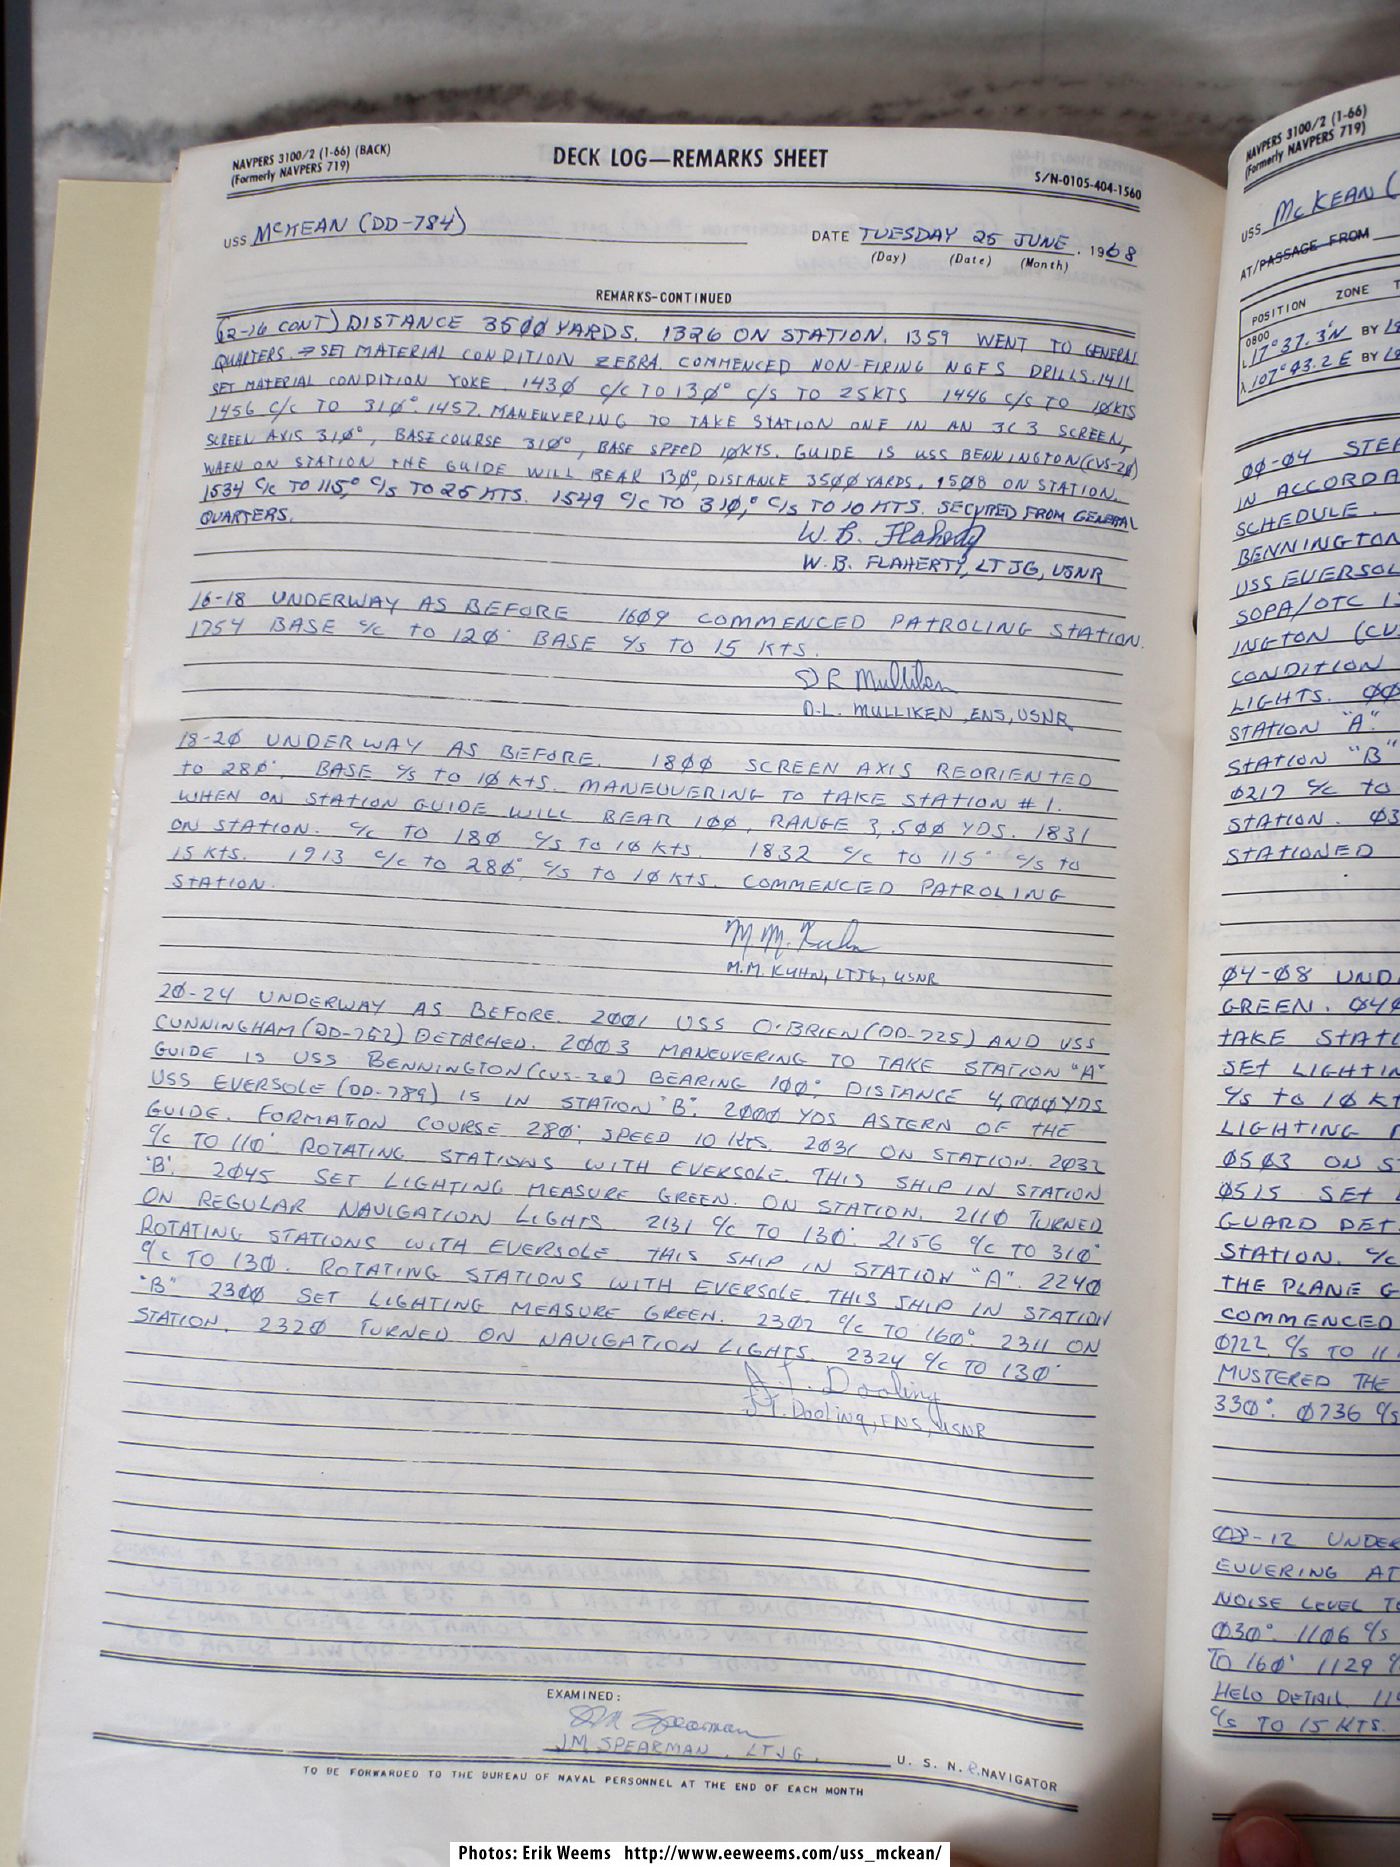 NAVPERS 3100/2 (1-66) (BACK)
(Formerly NAVPERS 719)
DECK LOG—REMARKS SHEET
S/N-0105-404-1560
USS MCKEAN (DD-784)
DATE TUESDAY 25 JUNE, 1968
(Day) (Date) (Month)
REMARKS-CONTINUED
(12-16 CONT) DISTANCE 35ØØ YARDS. 1326 ON STATION. 1359 WENT TO GENERAL
QUARTERS. → SET MATERIAL CONDITION ZEBRA. COMMENCED NON-FIRING NGFS DRILLS. 1411
SET MATERIAL CONDITION YOKE. 143Ø C/C TO 13Ø° C/S TO 25KTS 1446 C/S TO 1ØKTS
1456 C/C TO 31Ø°. 1457. MANEUVERING TO TAKE STATION ONE IN AN 3C3 SCREEN,
SCREEN AXIS 31Ø°, BASE COURSE 31Ø°, BASE SPEED 1ØKTS. GUIDE IS USS BENNINGTON (CVS-2Ø)
WHEN ON STATION THE GUIDE WILL BEAR 13Ø°, DISTANCE 35ØØ YARDS. 15Ø8 ON STATION.
1534 C/C TO 115,° C/S TO 25 KTS. 1549 C/C TO 310,° C/S TO 10 KTS. SECURED FROM GENERAL
QUARTERS.
W. B. Flaherty
W. B. FLAHERTY, LTJG, USNR
16-18 UNDERWAY AS BEFORE 16Ø9 COMMENCED PATROLING STATION.
1754 BASE C/C TO 12Ø° BASE C/S TO 15 KTS.
D L Mulliken
D.L. MULLIKEN, ENS, USNR
18-2Ø UNDERWAY AS BEFORE. 18ØØ SCREEN AXIS REORIENTED
TO 28Ø°. BASE C/S TO 1Ø KTS. MANEUVERING TO TAKE STATION # 1.
WHEN ON STATION GUIDE WILL BEAR 1ØØ, RANGE 3,5ØØ YDS. 1831
ON STATION. C/C TO 18Ø C/S TO 1Ø KTS. 1832 C/C TO 115° C/S TO
15 KTS. 1913 C/C TO 28Ø°, C/S TO 1Ø KTS. COMMENCED PATROLING
STATION.
M M. Kuhn
M.M. KUHN, LTJG, USNR
2Ø-24 UNDERWAY AS BEFORE. 2ØØ1 USS O'BRIEN (DD-725) AND USS
CUNNINGHAM (DD-752) DETACHED. 2ØØ3 MANEUVERING TO TAKE STATION "A"
GUIDE IS USS BENNINGTON (CVS-2Ø) BEARING 1ØØ°, DISTANCE 4,ØØØ YDS
USS EVERSOLE (DD-789) IS IN STATION "B". 2ØØØ YDS ASTERN OF THE
GUIDE. FORMATION COURSE 28Ø°, SPEED 10 KTS. 2Ø31 ON STATION. 2Ø32
C/C TO 11Ø°. ROTATING STATIONS WITH EVERSOLE. THIS SHIP IN STATION
"B". 2Ø45 SET LIGHTING MEASURE GREEN. ON STATION. 211Ø TURNED
ON REGULAR NAVIGATION LIGHTS 2131 C/C TO 13Ø°. 2156 C/C TO 31Ø°
ROTATING STATIONS WITH EVERSOLE THIS SHIP IN STATION "A". 224Ø
C/C TO 13Ø. ROTATING STATIONS WITH EVERSOLE. THIS SHIP IN STATION
"B" 23ØØ SET LIGHTING MEASURE GREEN. 23Ø2 C/C TO 16Ø°. 2311 ON
STATION. 232Ø TURNED ON NAVIGATION LIGHTS. 2324 C/C TO 13Ø°
J.T. Dooling
J.T. Dooling, ENS, USNR
EXAMINED:
JM Spearman
JM SPEARMAN, LTJG, U. S. N. R. NAVIGATOR
TO BE FORWARDED TO THE BUREAU OF NAVAL PERSONNEL AT THE END OF EACH MONTH
NAVPERS 3100/2 (1-66)
(Formerly NAVPERS 719)
USS McKEAN (
AT/PASSAGE FROM
POSITION ZONE
0800
L 17° 37.3'N BY
λ 107° 43.2 E BY
ØØ-Ø4
IN
SCHEDULE.
BENNINGTON
USS
SOPA/OTC
CONDITION
LIGHTS.
STATION "A".
STATION "B"
Ø217 C/C TO
STATION.
STATIONED
Ø4-Ø8
GREEN.
TAKE
SET
C/S TO 1Ø
LIGHTING
Ø5Ø3 ON
Ø515 SET
GUARD
STATION. C/C
THE PLANE
COMMENCED
Ø722 C/S TO
MUSTERED THE
33Ø°. Ø736 C/S
Ø8-12
AT
NOISE LEVEL
Ø3Ø°. 11Ø6 C/S
TO 16Ø° 1129
HELO DETAIL
C/S TO 15 KTS.
Photos: Erik Weems http://www.eeweems.com/uss_mckean/